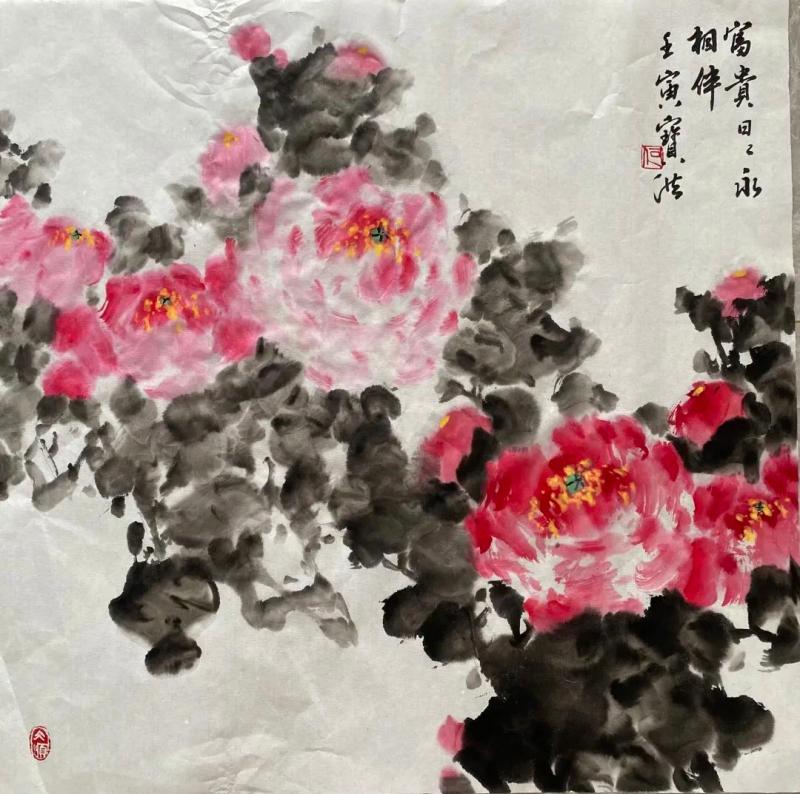 富貴日日永
相伴
壬寅寶洪
何